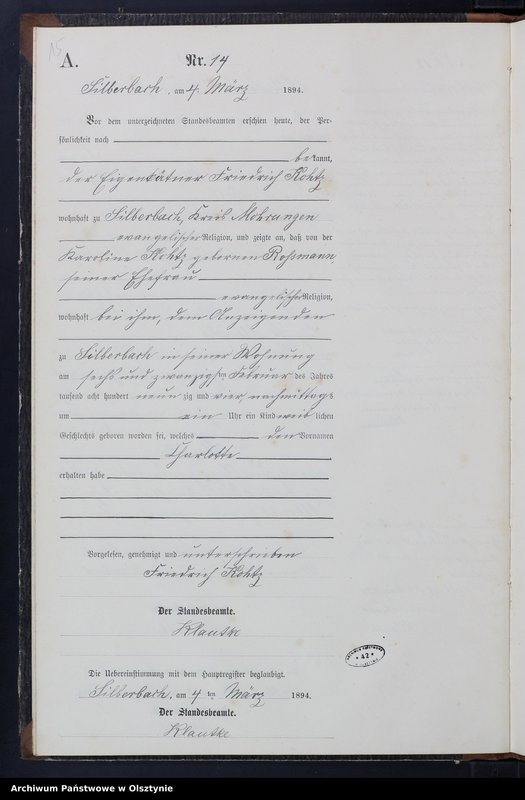 15
A.
Nr. 14
Silberbach, am 4. März 1894.
Vor dem unterzeichneten Standesbeamten erschien heute, der Per-
sönlichkeit nach
bekannt,
der Eigenkätner Friedrich Kohtz
wohnhaft zu Silberbach, Kreis Mohrungen
evangelischer Religion, und zeigte an, daß von der
Karoline Kohtz gebornen Roßmann
seiner Ehefrau
evangelischer Religion,
wohnhaft bei ihm, dem Anzeigenden
zu Silberbach in seiner Wohnung
am sechs und zwanzigsten Februar des Jahres
tausend acht hundert neunzig und vier nachmittags
um ein Uhr ein Kind weiblichen
Geschlechts geboren worden sei, welches den Vornamen
Charlotte
erhalten habe
Vorgelesen, genehmigt und unterschrieben
Friedrich Kohtz
Der Standesbeamte.
Klautke
Die Uebereinstimmung mit dem Hauptregister beglaubigt.
Silberbach, am 4ten März 1894.
Der Standesbeamte.
Klautke
* 42 *
Archiwum Państwowe w Olsztynie